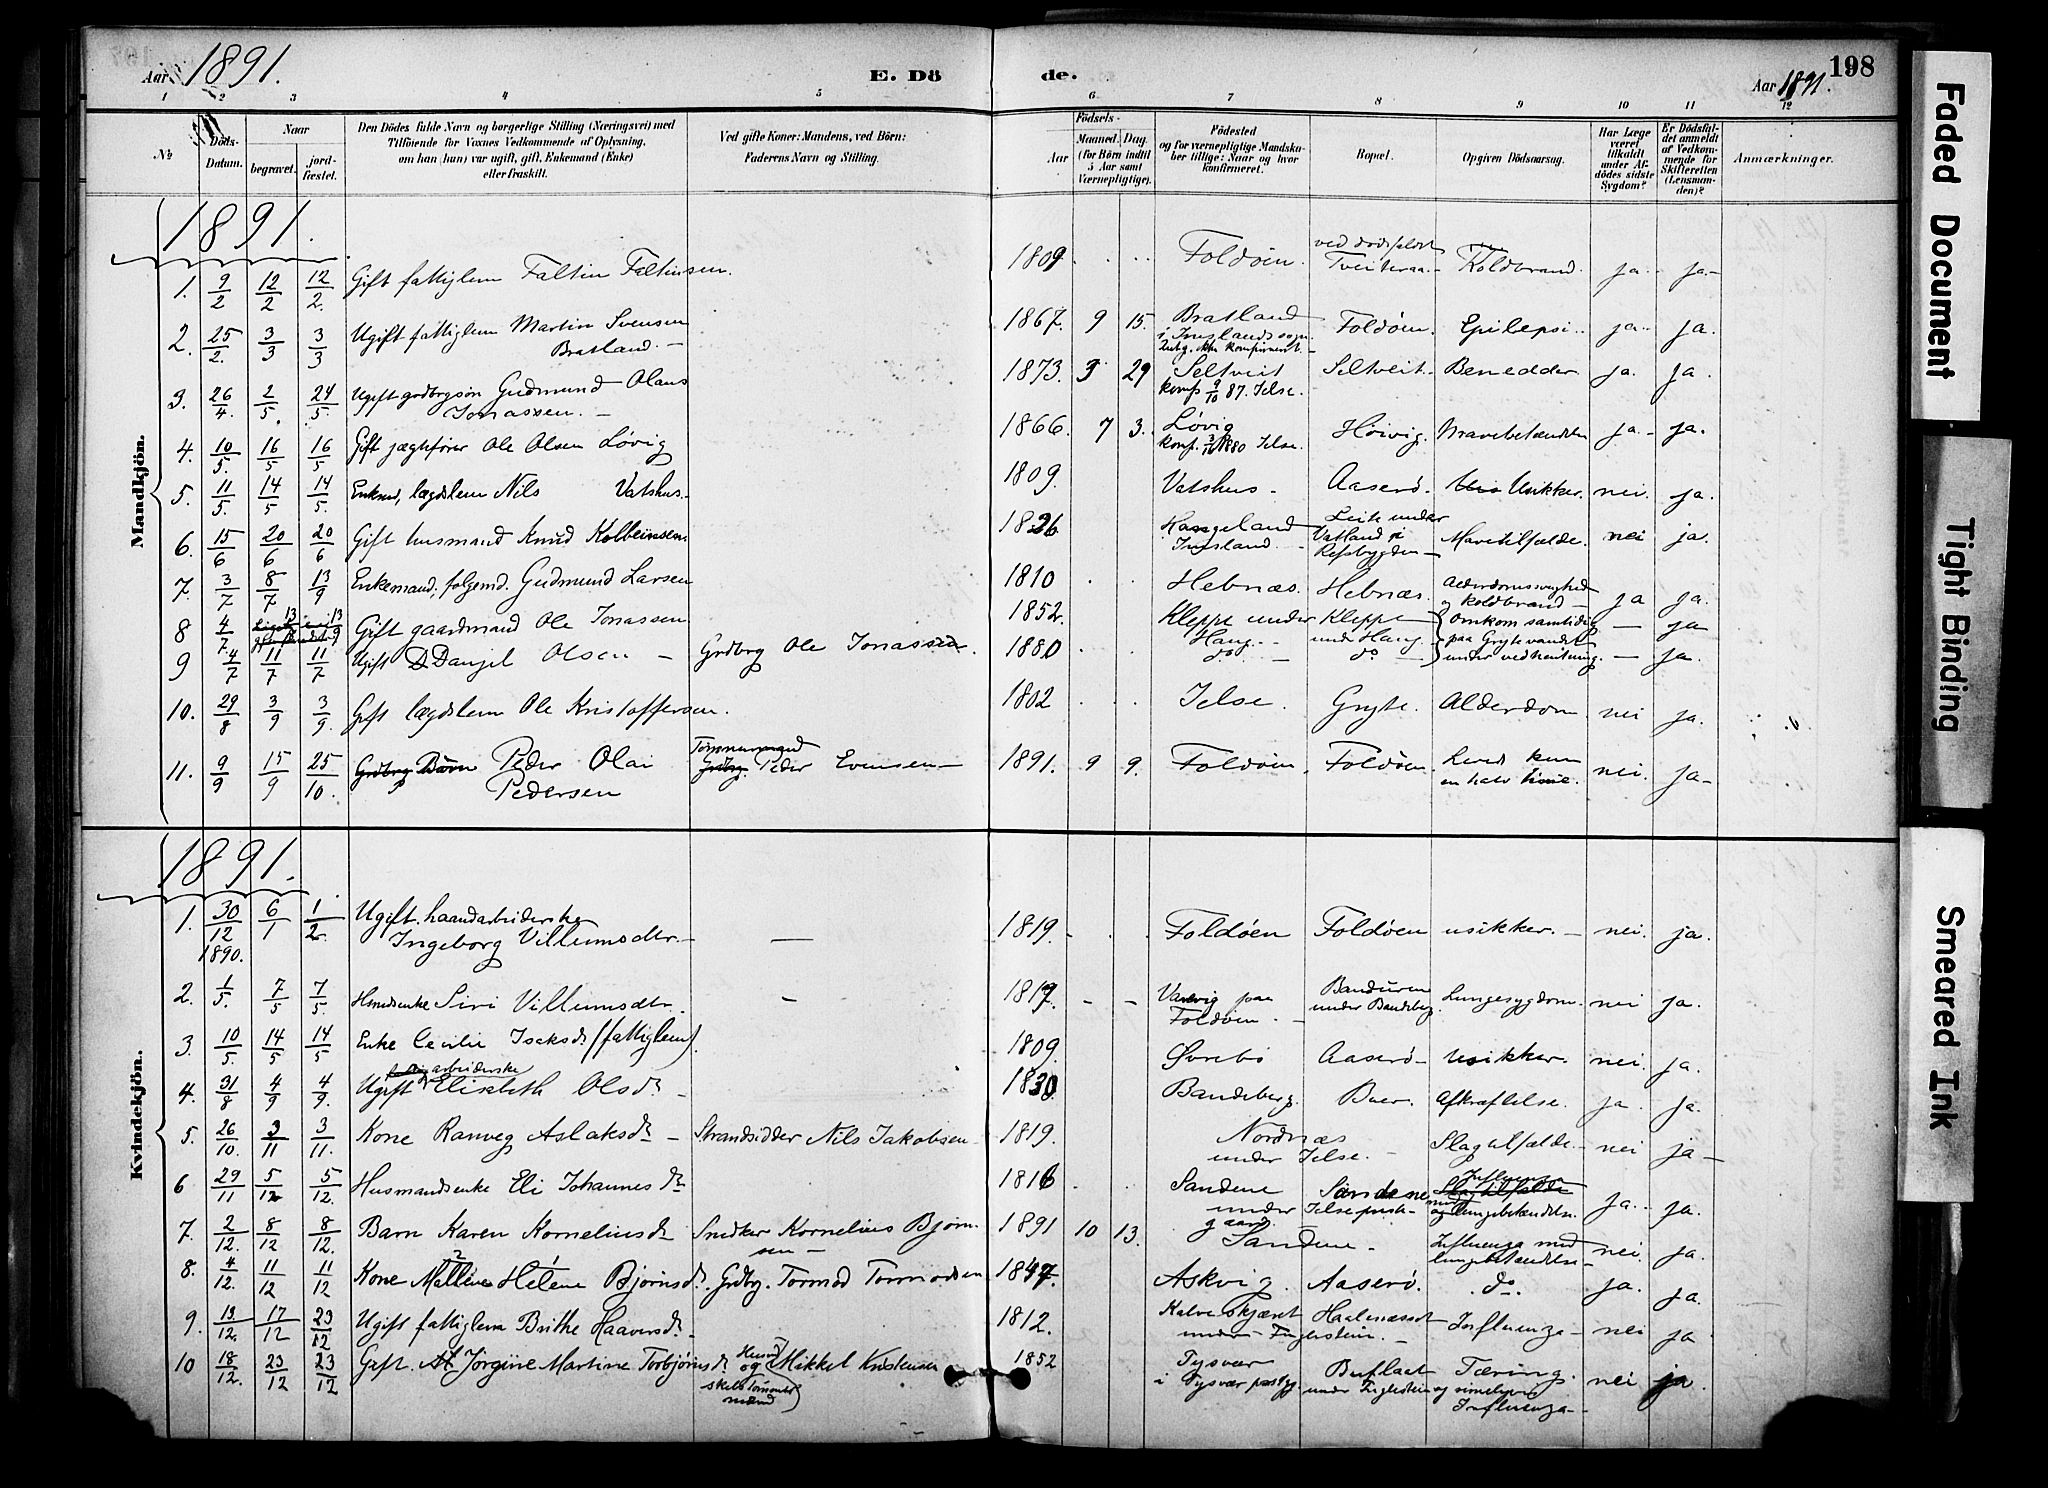 Aar 1891.
E. Dö
de.
198
Aar 1891.
1 2 3 4 5 6 7 8 9 10 11 12
№
Döds-Datum.
Naar
begravet.
jord-fæstet.
Den Dödes fulde Navn og borgerlige Stilling (Næringsvei) med
Tilføiende for Voxnes Vedkommende af Oplysning,
om han (hun) var ugift, gift, Enkemand (Enke)
eller fraskilt.
Ved gifte Koner: Mandens, ved Börn:
Faderens Navn og Stilling.
Födsels-
Aar
Maaned. Dag.
(for Börn indtil
5 Aar samt
Værnepligtige).
Födested
og for værnepligtige Mandska-
ber tillige: Naar og hvor
konfirmeret.
Bopæl.
Opgiven Dödsaarsag.
Har Læge
været
tilkaldt
under Af-
dödes sidste
Sygdom?
Er Dödsfal-
det anmeldt
af Vedkom-
mende for
Skifteretten
(Lensman-
den)?
Anmærkninger.
Mandkjön.
1891.
1. 9/2 12/2 12/2. Gift fattiglem Faltin Faltinsen. 1809 Foldöen. ved dödsfaldet Tveiteraa. Koldbrand. ja. ja
2. 25/2. 3/3 3/3 Ugift fattiglem Martin Svensen Bratland. 1867. 9 15. Bratland i Imslands sogn Foldöen. Epilepsi. ja. ja.
3. 26/4. 2/5. 24/5. Ugift grdbrgsön Gudmund Olaus Jonassen. 1873. 3 29 Seltveit konf 9/10 87. Jelse. Seltveit. Benedder ja. ja.
4. 10/5. 16/5 16/5 Gift jægtfører Ole Olsen Løvig 1866. 7 3. Løvig konf. 1880 Jelse. Høivig. Mavebetændelse ja. ja.
5. 11/5. 14/5 14/5. Enkmd, lægdslem Nils Vatshus. 1809. Vatshus. Aaserø. Usikker. nei. ja.
6. 15/6 20/6 20/6 Gift husmand Knud Kolbeinsen. 1826 Hangeland Imsland. under Vatland i Refsbygden Mavetilfælde. nei ja.
7. 3/7 8/7 13/9 Enkemand, folgemd. Gudmund Larsen 1810 Hebnæs. Hebnæs. Alderdomssvaghed og koldbrand ja ja.
8 4/7. 13 13/9 Gift gaardmand Ole Jonassen 1852. Kleppe under Hang. Kleppe under Hang. Omkom samtidig paa Grytevandet under vedhentning. ja
9 4/7 11/7 11/7 Ugift Danjel Olsen Grdbrg Ole Jonassen. 1880 do do ja.
10. 29/8 3/9 3/9. Gift lægdslem Ole Kristoffersen. 1802 Jelse. Gryte. Alderdom nei ja.
11. 9/9 15/9 25/10. Grdbrg Børn Peder Olai Pedersen Tømmermand Grdbrg. Peder Evensen 1891. 9 9. Foldöen. Foldöen. Leved kun en halv time. nei. ja
Kvindekjön.
1891.
1. 30/12 1890. 6/1 1/2 Ugift haandarbeiderske Ingeborg Villumsdtr. 1819. Foldöen Foldöen usikker. nei. ja.
2. 1/5. 7/5 7/5. Hmdsenke Siri Villumsdtr. 1817. Varvig paa Foldöen. Banduren under Bandeberg. Lungesygdom. nei ja.
3. 10/5. 14/5 14/5 Enke Cecilie Isaksd (fattiglem). 1809. Ovrebö Aaserö usikker. nei. ja.
4. 31/8 4/9 4/9. Ugift arbeiderske Elisabeth Olsd 1830. Bandeberg. Boer. Afkræftelse. ja. ja.
5. 26/10. 3/11 3/11. Kone Ranveg Aslaksd Strandsidder Nils Jakobsen 1819. Nordnæs under Jelse. Slagtilfælde. nei ja
6 29/11 5/12 5/12. Husmandsenke Eli Johannesd 1816 Sandene under Jelse prestegaard. Sandene Influenza Slagtilfælde med lungebetændelse. ja. ja.
7. 2/12. 8/12 8/12. Barn Karen Korneliusd Snedker Kornelius Bjørnsen 1891 10 13. Sandene. Influenza med lungebetændelse nei. ja.
8. 4/12. 11/12 11/12 Kone Malline Helene Bjørnsd. Grdbg. Tormod Tormodsen 1847. Askvig. Aaserö. do. ja. ja.
9. 13/12. 17/12 23/12 Ugift fattiglem Brithe Haaversd 1812. Kalveskjæret under Fuglestein. Haalandset Influenza nei ja
10 18/12. 23/12 23/12 Gift. Jørgine Martine Torbjørnsd Husmd og skibstømmermand Mikkel Kristensen 1852 Tysvær i Tysvær prestgj. Buflaat under Fuglestein Tæring. og Influenza nei ja
Faded Document
Tight Binding
Smeared Ink